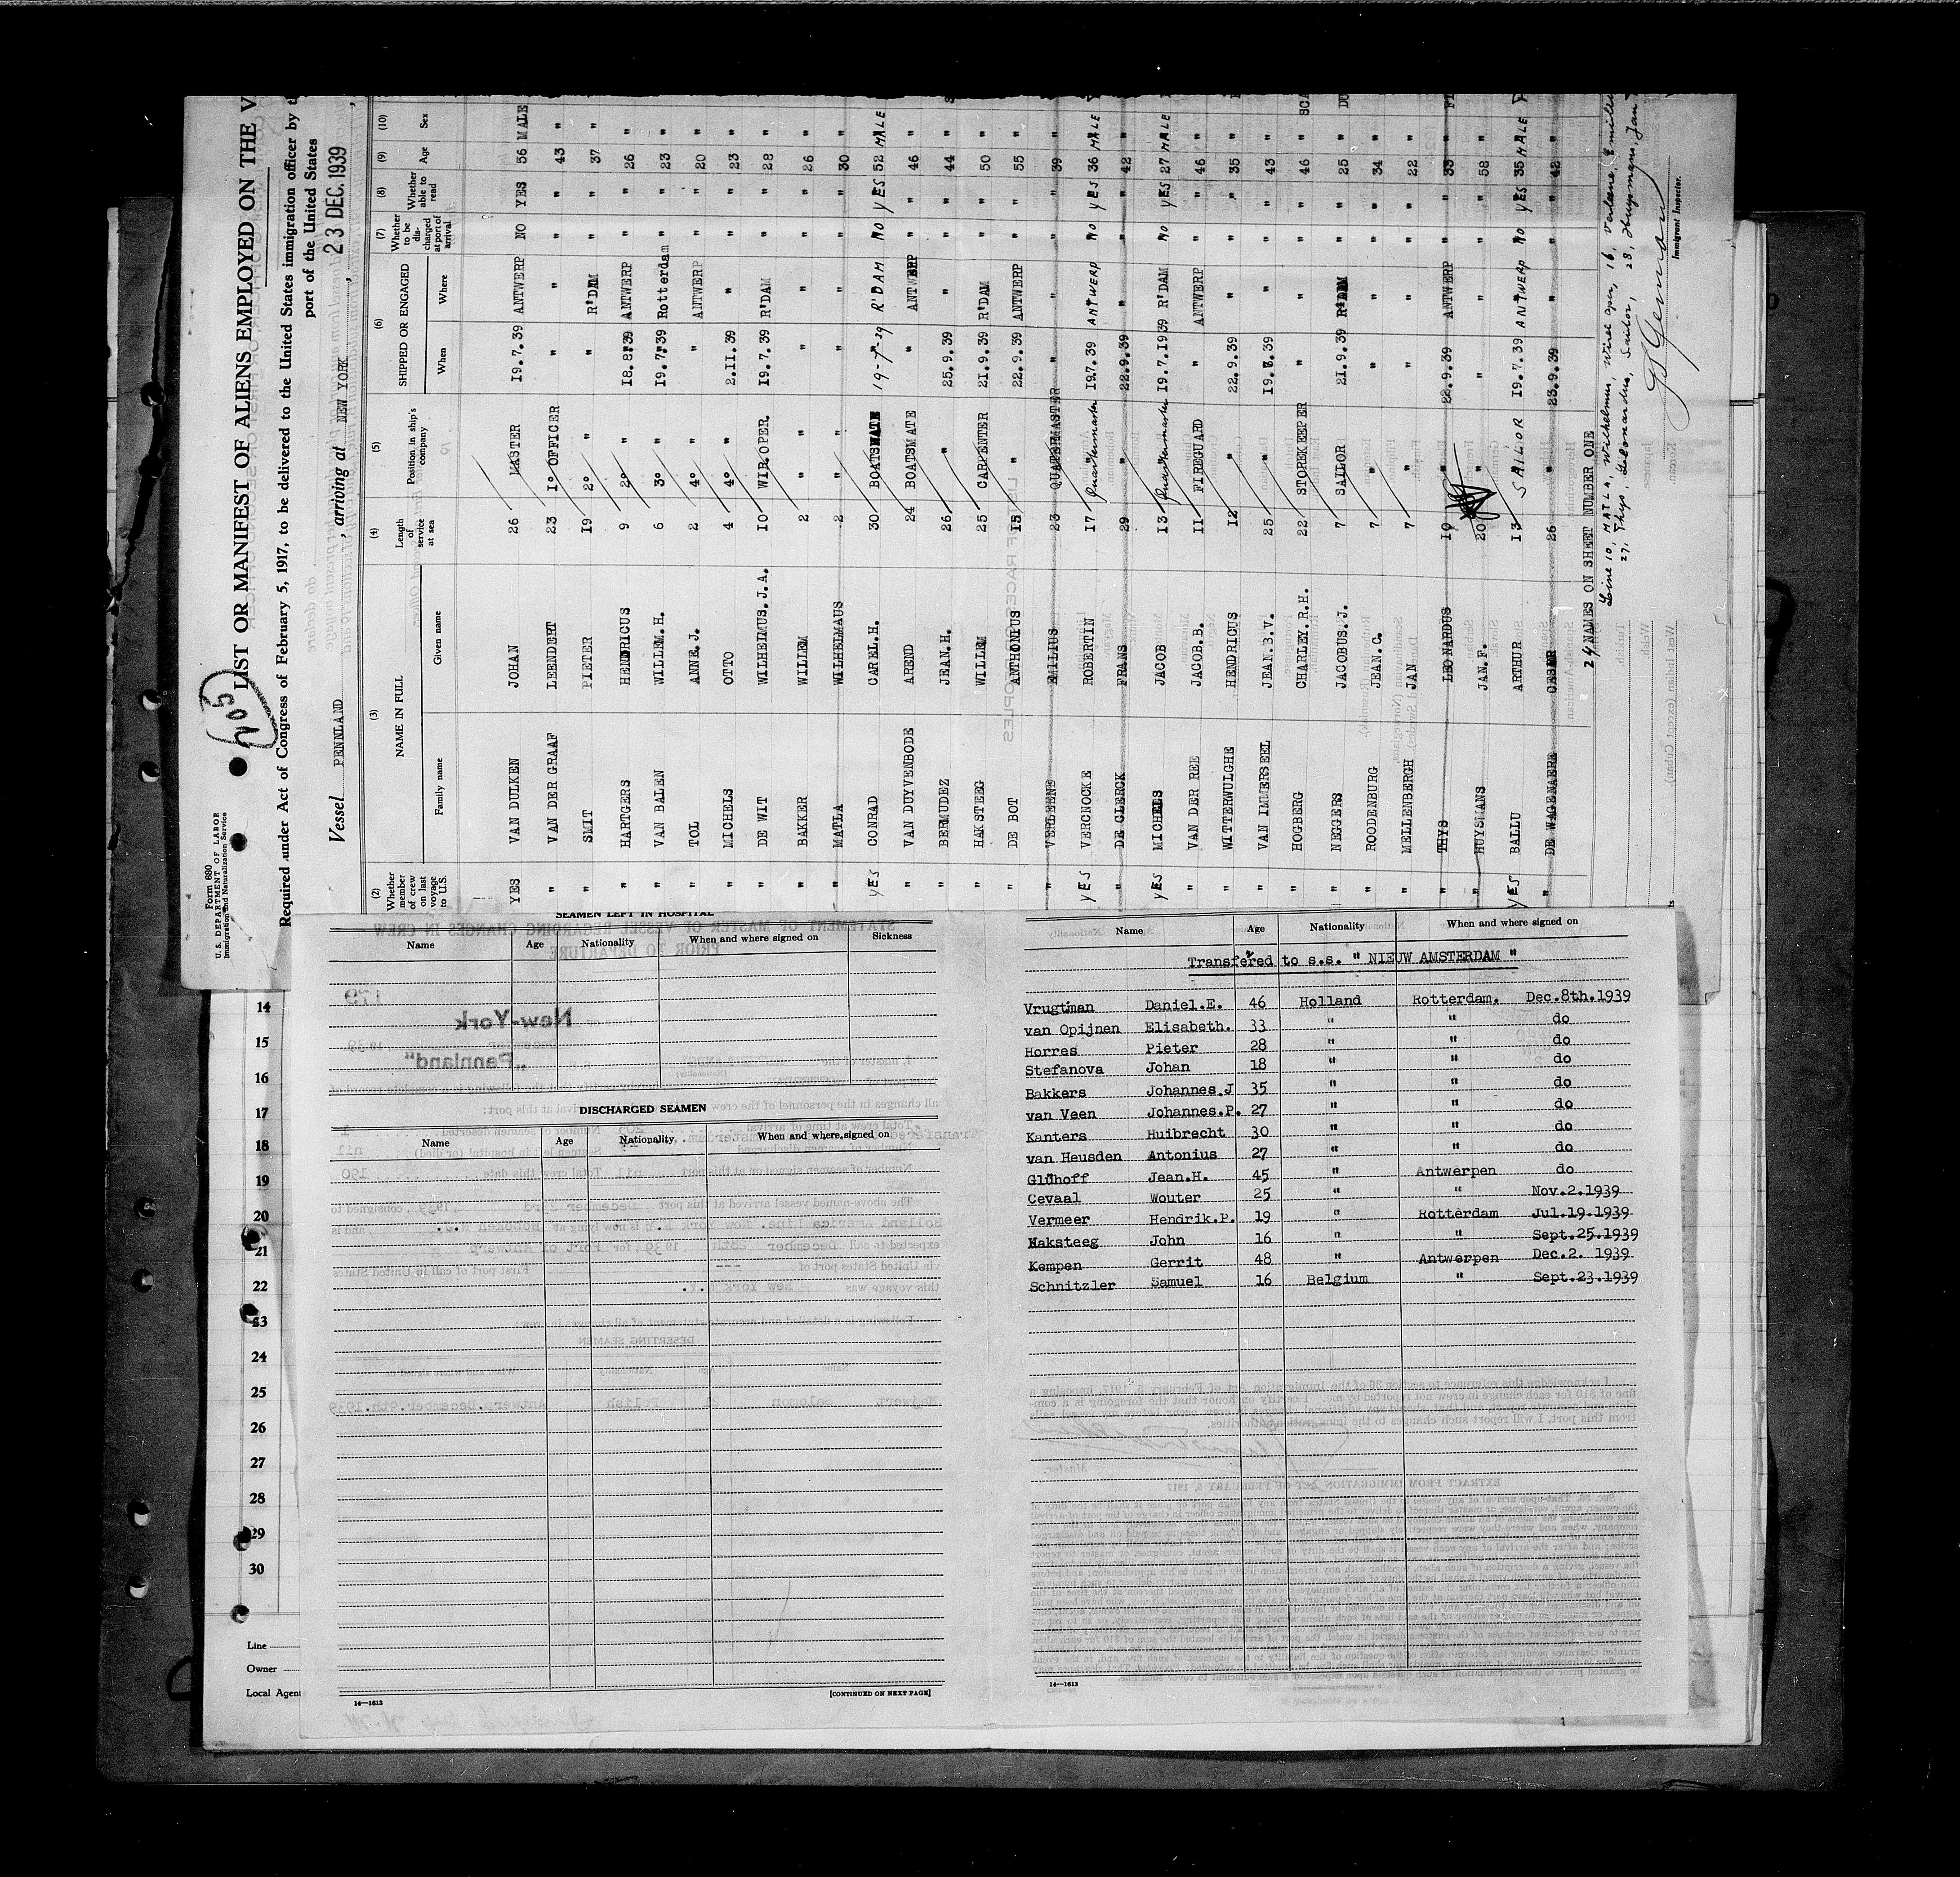 Form 680
U. S. DEPARTMENT OF LABOR
Immigration and Naturalization Service
409
LIST OR MANIFEST OF ALIENS EMPLOYED ON THE V
Required under Act of Congress of February 5, 1917, to be delivered to the United States immigration officer by t
port of the United States
Vessel PENNLAND, arriving at NEW YORK, 23 DEC. 1939,
(2) (3) (4) (5) (6) (7) (8) (9) (10)
Whether member of crew on last voyage to U.S. NAME IN FULL Family name Given name Length of service at sea Position in ship's company SHIPPED OR ENGAGED When Where Whether to be discharged at port of arrival Whether able to read Age Sex
YES VAN DULKEN JOHAN 26 MASTER 19.7.39 ANTWERP NO YES 56 MALE
" VAN DER GRAAF LEENDERT 23 1° OFFICER " " " " 43 "
" SMIT PIETER 19 2° " " R'DAM " " 37 "
" HARTGERS HENDRICUS 9 2° " 18.8.39 ANTWERP " " 26 "
" VAN BALEN WILLEM.H. 6 3° " 19.7.39 Rotterdam " " 23 "
" TOL ANNE.J. 2 4° " " ANTWERP " " 20 "
" MICHELS OTTO 4 4° " 2.11.39 " " " 23 "
" DE WIT WILHELMUS.J.A. 10 WIR.OPER. 19.7.39 R'DAM " " 28 "
" BAKKER WILLEM 2 " " " " " 26 "
" MATLA WILHELMAUS 2 " " " " " 30 "
YES CONRAD CAREL.H. 30 BOATSMATE 19-7-39 R'DAM NO YES 52 MALE
" VAN DUYVENBODE AREND 24 BOATSMATE " ANTWERP " " 46 "
" BERMUDEZ JEAN.H. 26 " 25.9.39 " " " 44 "
" HAKSTEEG WILLEM 25 CARPENTER 21.9.39 R'DAM " " 50 "
" DE BOT ANTHONIUS 15 " 22.9.39 ANTWERP " " 55 "
" VERLEENE EMILIUS 23 QUARTERMASTER " " " " 39 "
YES VERCNOCKE ROBERTIN 17 Quartermaster 19.7.39 ANTWERP NO YES 36 MALE
" DE CLERCK FRANS 29 22.9.39 " " " 42 "
YES MICHELS JACOB 13 Quartermaster 19.7.1939 R'DAM NO YES 27 MALE
" VAN DER REE JACOB.B. 11 FIREGUARD " ANTWERP " " 46 "
" WITTERWULGHE HENDRICUS 12 " 22.9.39 " " " 35 "
" VAN IMMERSEEL JEAN.B.V. 25 " 19.7.39 " " " 43 "
" HOGBERG CHARLEY.R.H. 22 STOREKEEPER " " " " 46 "
" NEGGERS JACOBUS.J. 7 SAILOR 21.9.39 R'DAM " " 25 "
" ROODENBURG JEAN.C. 7 " " " " " 34 "
" MELLENBERGH JAN 7 " " " " " 22 "
" THYS LEONARDUS 10 " 22.9.39 ANTWERP " " 33 "
" HUYSMANS JAN.F. 20 " " " " " 58 "
YES BALLU ARTHUR 13 SAILOR 19.7.39 ANTWERP NO YES 35 MALE
" DE WAGENAERE CESAR 26 " 23.9.39 " " " 42 "
24 NAMES ON SHEET NUMBER ONE
Line 10, MATLA, Wilhelmus, Wirel oper, 16, Verleene, Emilie
27, Thys, Leonardus, Sailor, 28, Huysmans, Jan
Immigrant Inspector.
14
15
16
17
18
19
20
21
22
23
24
25
26
27
28
29
30
Line
Owner
Local Agen
SEAMEN LEFT IN HOSPITAL
Name Age Nationality When and where signed on Sickness
DISCHARGED SEAMEN
Name Age Nationality When and where signed on
14—1613 [CONTINUED ON NEXT PAGE]
Name Age Nationality When and where signed on
Transfered to s.s. " NIEUW AMSTERDAM "
Vrugtman Daniel.E. 46 Holland Rotterdam. Dec.8th.1939
van Opijnen Elisabeth. 33 " " do
Horres Pieter 28 " " do
Stefanova Johan 18 " " do
Bakkers Johannes.J 35 " " do
van Veen Johannes.P. 27 " " do
Kanters Huibrecht 30 " " do
van Heusden Antonius 27 " " do
Glühoff Jean.H. 45 " Antwerpen do
Cevaal Wouter 25 " " Nov.2.1939
Vermeer Hendrik.P. 19 " Rotterdam Jul.19-1939
Haksteeg John 16 " " Sept.25.1939
Kempen Gerrit 48 " Antwerpen Dec.2. 1939
Schnitzler Samuel 16 Belgium " Sept.23.1939
14—1613